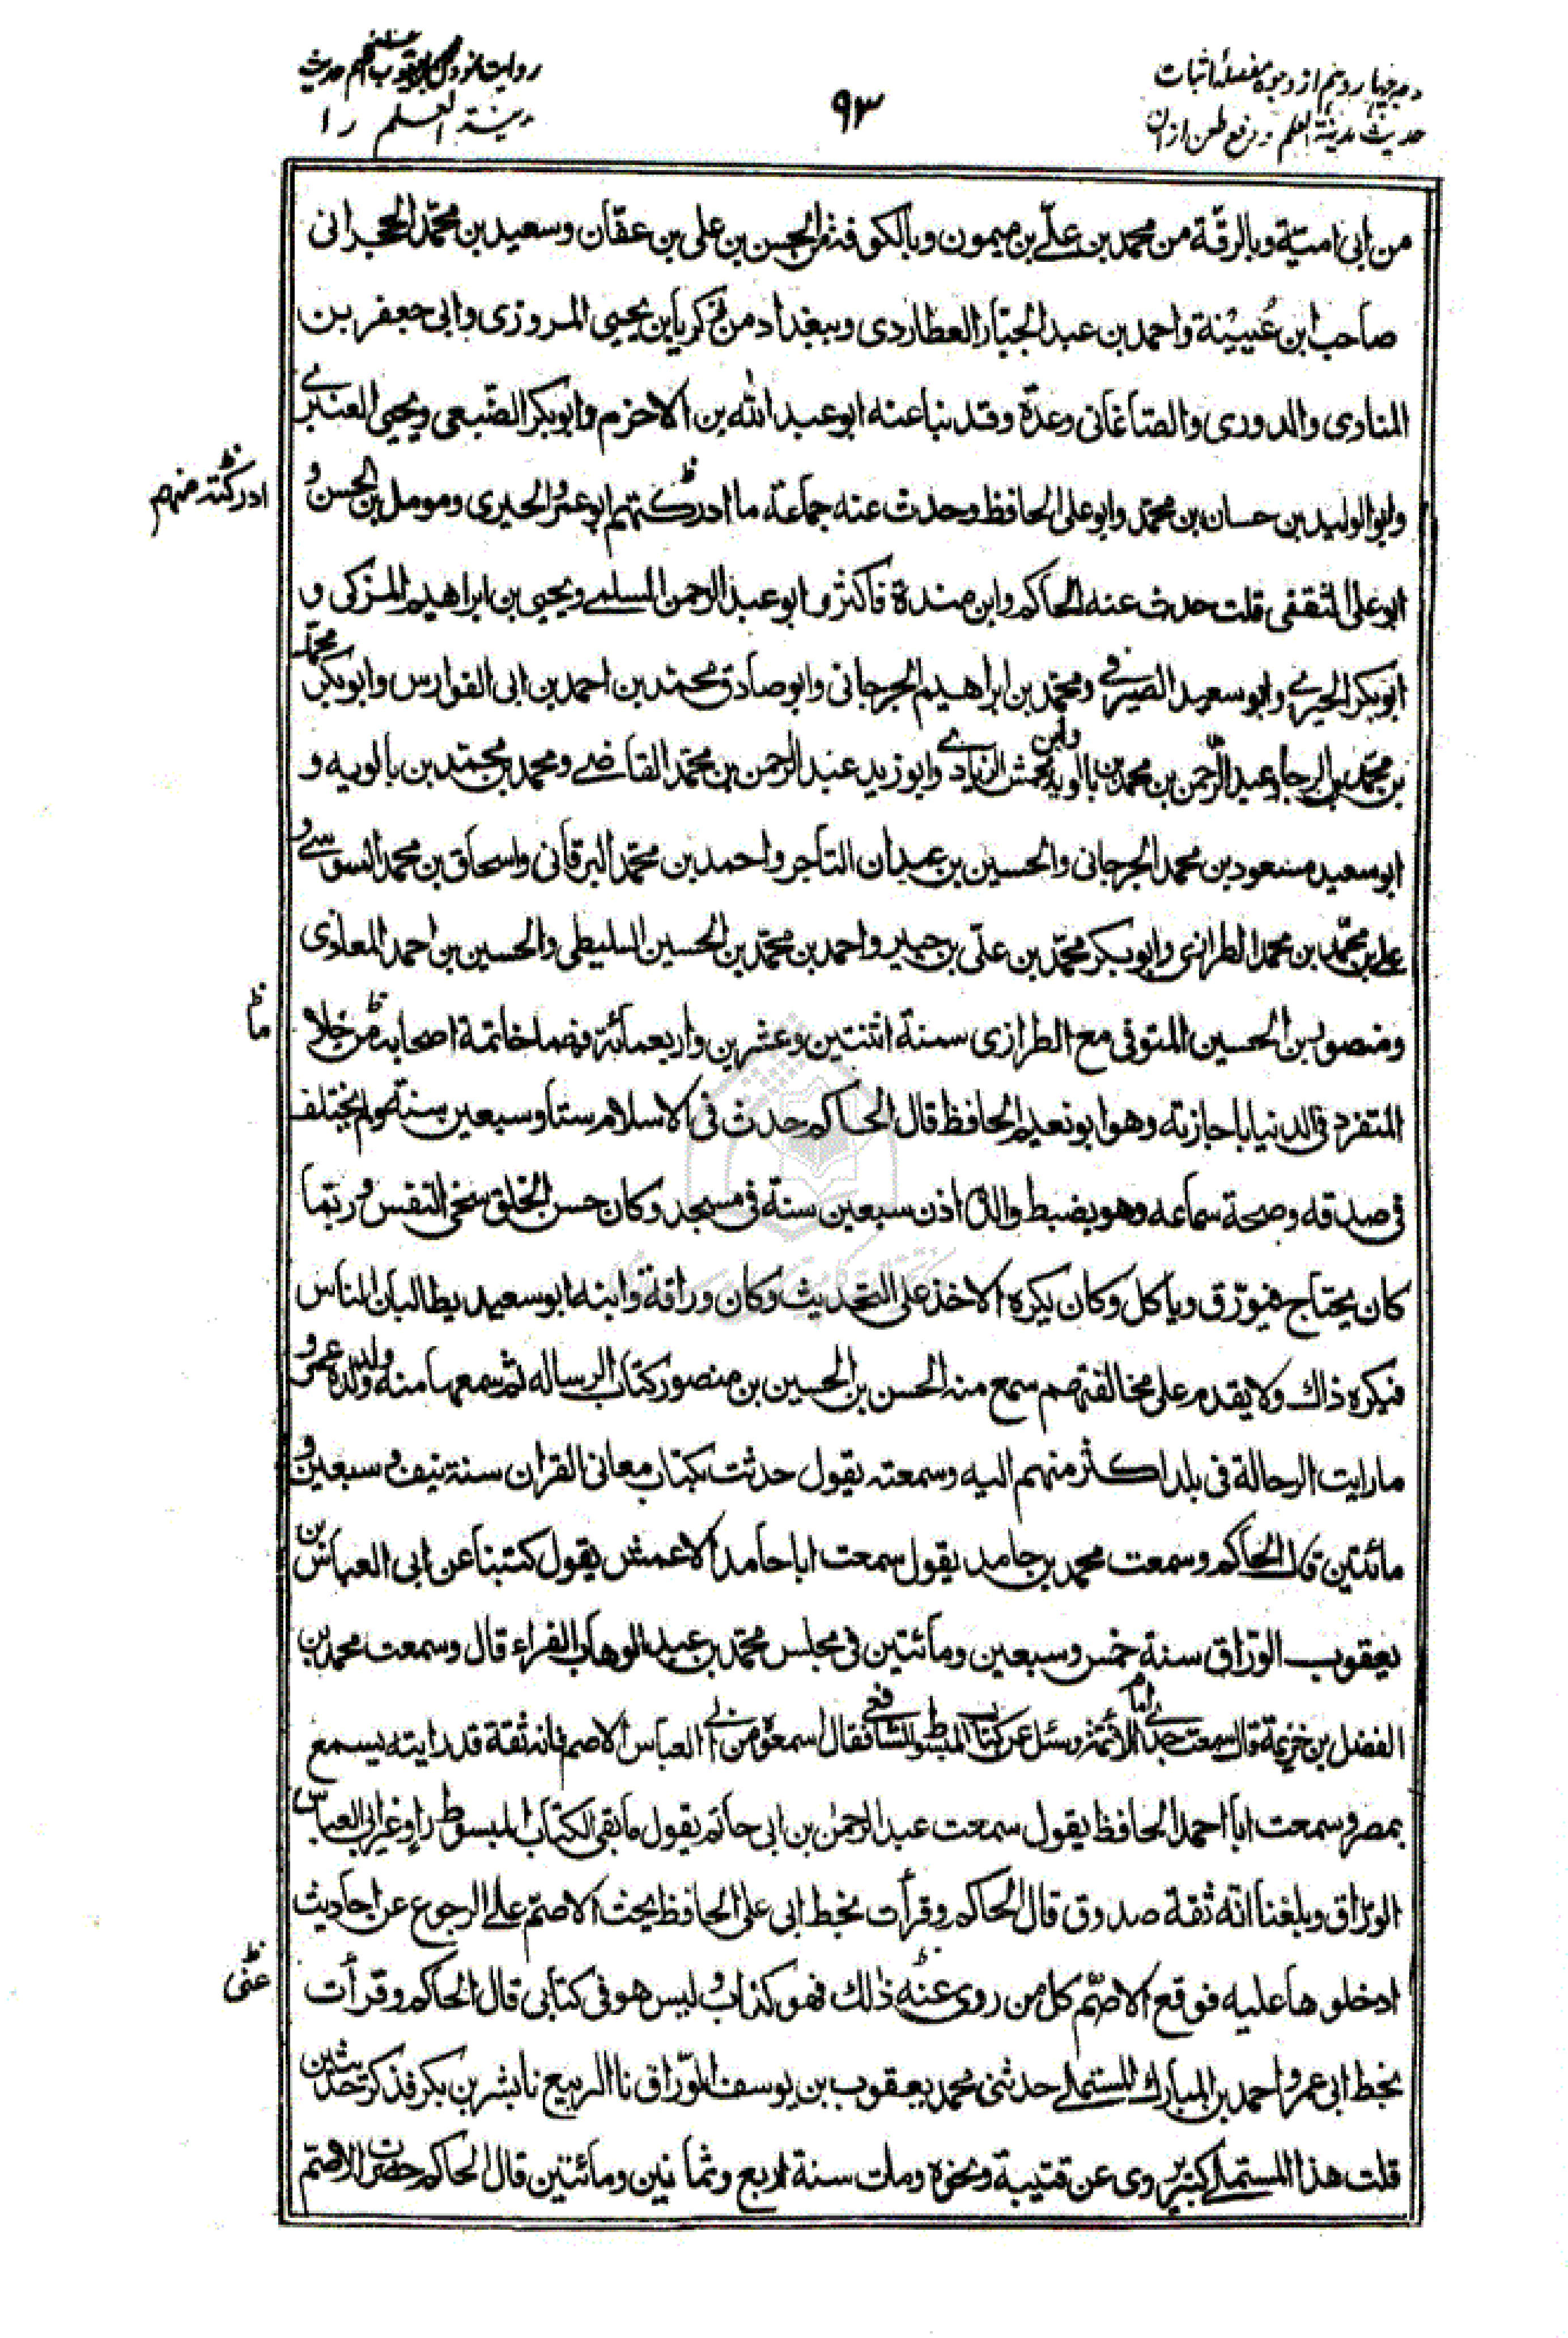 وجه چهاردهم از وجوه مفصلهٔ اثبات
حدیث مدینة العلم و دفع طعن ازان
٩٣
روایت نمودن محمد بن یعقوب اصم حدیث
مدینة العلم را
من ابی امیّة وبالرقّة من محمد بن علّے بن میمون وبالکوفة من الحسن بن علی بن عفّان وسعید بن محمّد الحجرانی
صاحب ابن عُیینة واحمد بن عبد الجبّار العطاردی وببغداد من زکریا بن یحیی المروزی وابی جعفر بن
المنادی والدوری والصّاغانی وعدّة وقد نبا عنه ابو عبد الله بن الاخزم وابوبکر الضّبعی ویحیی العنبرے
وابو الولید بن حسان بن محمّد وابو علی الحافظ وحدث عنه جماعة ما ادرکتهم ابو عمرو الحیری ومومل بن الحسن و
ادرکته منهم
ابو علی الثقفی قلت حدث عنه الحاکم وابن مندة فاکثر وابو عبد الرحمن السلمے ویحیی بن ابراهیم المزکی و
ابوبکر الحیرے وابو سعید الصیرفے ومحمّد بن ابراهیم الجرجانی وابو صادق محمّد بن احمد بن ابی الفوارس وابوبکر محمّد
بن محمّد بن الرجا وعبد الرّحمن بن محمد بن بالویه وابن محمش الزیادے وابو زید عبد الرحمن بن محمّد القاضے ومحمد بن محمّد بن بالویه و
ابو سعید مسعود بن محمد الجرجانی والحسین بن عبدان التاجر واحمد بن محمّد البرقانی واسحاق بن محمد السوسے و
علے بن محمّد بن محمد الطرازی وابوبکر محمّد بن علی بن حید واحمد بن محمّد بن الحسین السلیطی والحسین بن احمد المعاذی
ومنصور بن الحسین المتوفی مع الطرازی سنة اثنتین وعشرین واربعمائة فهما خاتمة اصحابه من خلا
ما
المتفرد فی الدنیا باجازته وهو ابو نعیم الحافظ قال الحاکم حدث فی الاسلام ستا وسبعین سنة ولم یختلف
فی صدقه وصحة سماعه وهو یضبط والد اذن سبعین سنة فی مسجد وکان حسن الخلق سخی النفس وربّما
کان یحتاج فیورّق ویاکل وکان یکره الاخذ علی التحدیث وکان وراقة وابنه ابو سعید یطالبان الناس
فیکره ذاک ولا یقدم علی مخالفتهم سمع منه الحسن بن الحسین بن منصور کتاب الرساله ثم سمعها منه ولده عمرو
ما رایت الرحالة فی بلد اکثر منهم الیه وسمعته یقول حدثت بکتاب معانی القران سنة نیف وسبعین و
مائتین قال الحاکم وسمعت محمد بن حامد یقول سمعت ابا حامد الاعمش یقول کتبنا عن ابی العباس بن
یعقوب الورّاق سنة خمس وسبعین ومائتین فی مجلس محمّد بن عبد الوهاب الفراء قال وسمعت محمد بن
الفضل بن خزیمة قال سمعت جدے امام الائمة وسئل عن کتاب المبسوط للشافعے فقال اسمعوه من ابے العباس الاصم فانه ثقة قد رایته یسمع
بمصر وسمعت ابا احمد الحافظ یقول سمعت عبد الرحمٰن بن ابی حاتم یقول ما بقی لکتاب المبسوط راو غیر ابی العباس
الورّاق وبلغنا انّه ثقة صدوق قال الحاکم وقرأت بخط ابی علی الحافظ یحث الاصمّ علے الرجوع عن احادیث
ادخلوها علیه فوقع الاصّم کل من روی عنه ذلک فهو کذاب ولیس هو فی کتابی قال الحاکم وقرأت
عنّی
بخط ابی عمرو احمد بن المبارک المستملے حدثنی محمد یعقوب بن یوسف الورّاق نا الربیع نا بشر بن بکر فذکر حدیثین
قلت هذا المستملے کبیر یروی عن قتیبة ونحوه ومات سنة اربع وثمانین ومائتین قال الحاکم حضرت الاصمّ